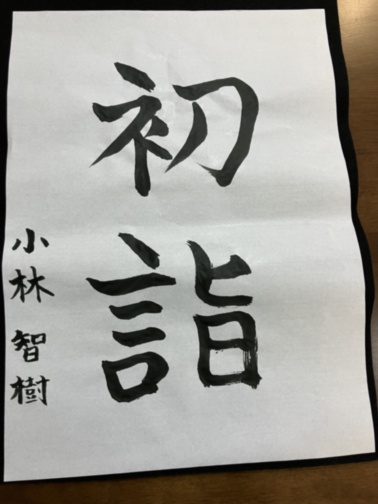 初詣
小林智樹